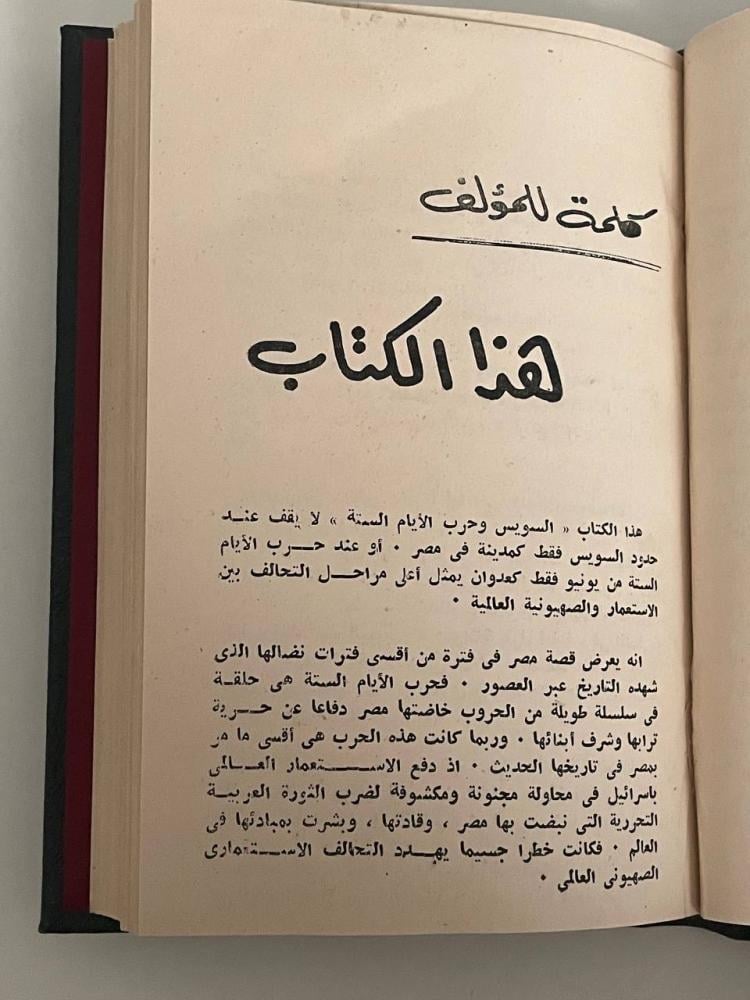 كلمة للمؤلف
هذا الكتاب
هذا الكتاب « السويس وحرب الأيام الستة » لا يقف عنـــد
حدود السويس فقط كمدينة فى مصر ٠ أو عند حـــرب الأيام
الستة من يونيو فقط كعدوان يمثل أعلى مراحـــل التحالف بين
الاستعمار والصهيونية العالمية ٠
انه يعرض قصة مصر فى فترة من أقسى فترات نضالها الذى
شهده التاريخ عبر العصور ٠ فحرب الأيام الستة هى حلقـة
فى سلسلة طويلة من الحروب خاضتها مصر دفاعا عن حـــرية
ترابها وشرف أبنائها ٠ وربما كانت هذه الحرب هى أقسى ما مر
بمصر فى تاريخها الحديث ٠ اذ دفع الاســـتعمار العـــالمى
باسرائيل فى محاولة مجنونة ومكشوفة لضرب الثورة العربيـــة
التحررية التى نبضت بها مصر ، وقادتها ، وبشرت بمبادئها فى
العالم ٠ فكانت خطرا جسيما يهـــدد التحالف الاســـتعمارى
الصهيونى العالمي ٠